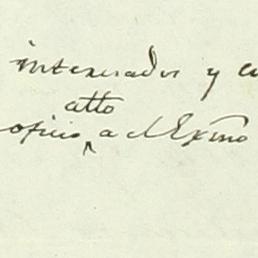 interesados y
atto
oficio a el Exmo